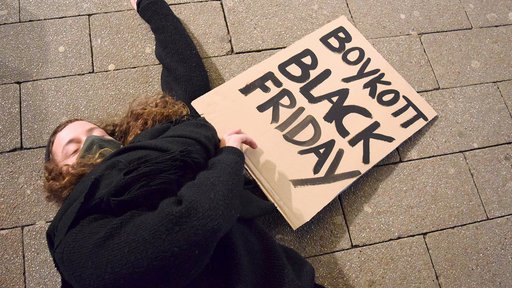 BOYKOTT
BLACK
FRIDAY